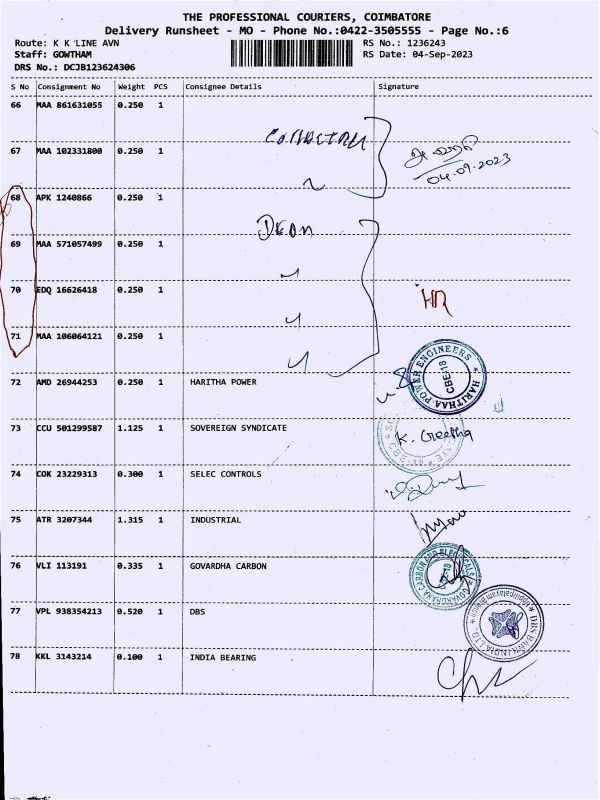 THE PROFESSIONAL COURIERS, COIMBATORE
Delivery Runsheet - MO - Phone No.:0422-3505555 - Page No.:6
Route: K K LINE AVN RS No.: 1236243
Staff: GOWTHAM RS Date: 04-Sep-2023
DRS No.: DCJB123624306
S No Consignment No Weight PCS Consignee Details Signature
66 MAA 861631055 0.250 1
67 MAA 102331800 0.250 1
04.09.2023
68 APK 1240866 0.250 1
69 MAA 571057499 0.250 1
70 EDQ 16626418 0.250 1
HR
71 MAA 106064121 0.250 1
72 AMD 26944253 0.250 1 HARITHA POWER
HARITHAA POWER ENGINEERS
CBE-18
73 CCU 501299587 1.125 1 SOVEREIGN SYNDICATE
K. Geetha
74 COK 23229313 0.300 1 SELEC CONTROLS
75 ATR 3207344 1.315 1 INDUSTRIAL
76 VLI 113191 0.335 1 GOVARDHA CARBON
77 VPL 938354213 0.520 1 DBS
DBS BANK INDIA LTD.
78 KKL 3143214 0.100 1 INDIA BEARING